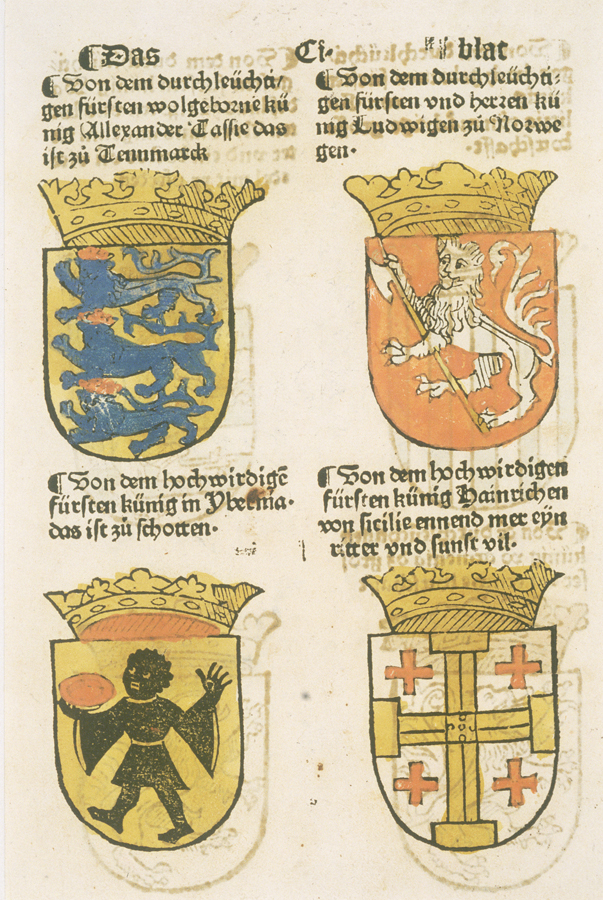 ¶Das Ci. blat
¶Von dem durchleüchti/
gen fürsten wolgeborne kü
nig Allexander Tassie das
ist zů Tennmarck
¶Von dem durchleüchti⸗
gen fürsten vnd herren kü
nig Ludwigen zů Norwe
gen.
¶Von dem hochwirdigē
fürsten künig in Ybernia.
das ist zů schotten.
¶Von dem hochwirdigen
fürsten künig Hainrichen
von sicilie ennend mer eyn
ritter vnd sunst vil.